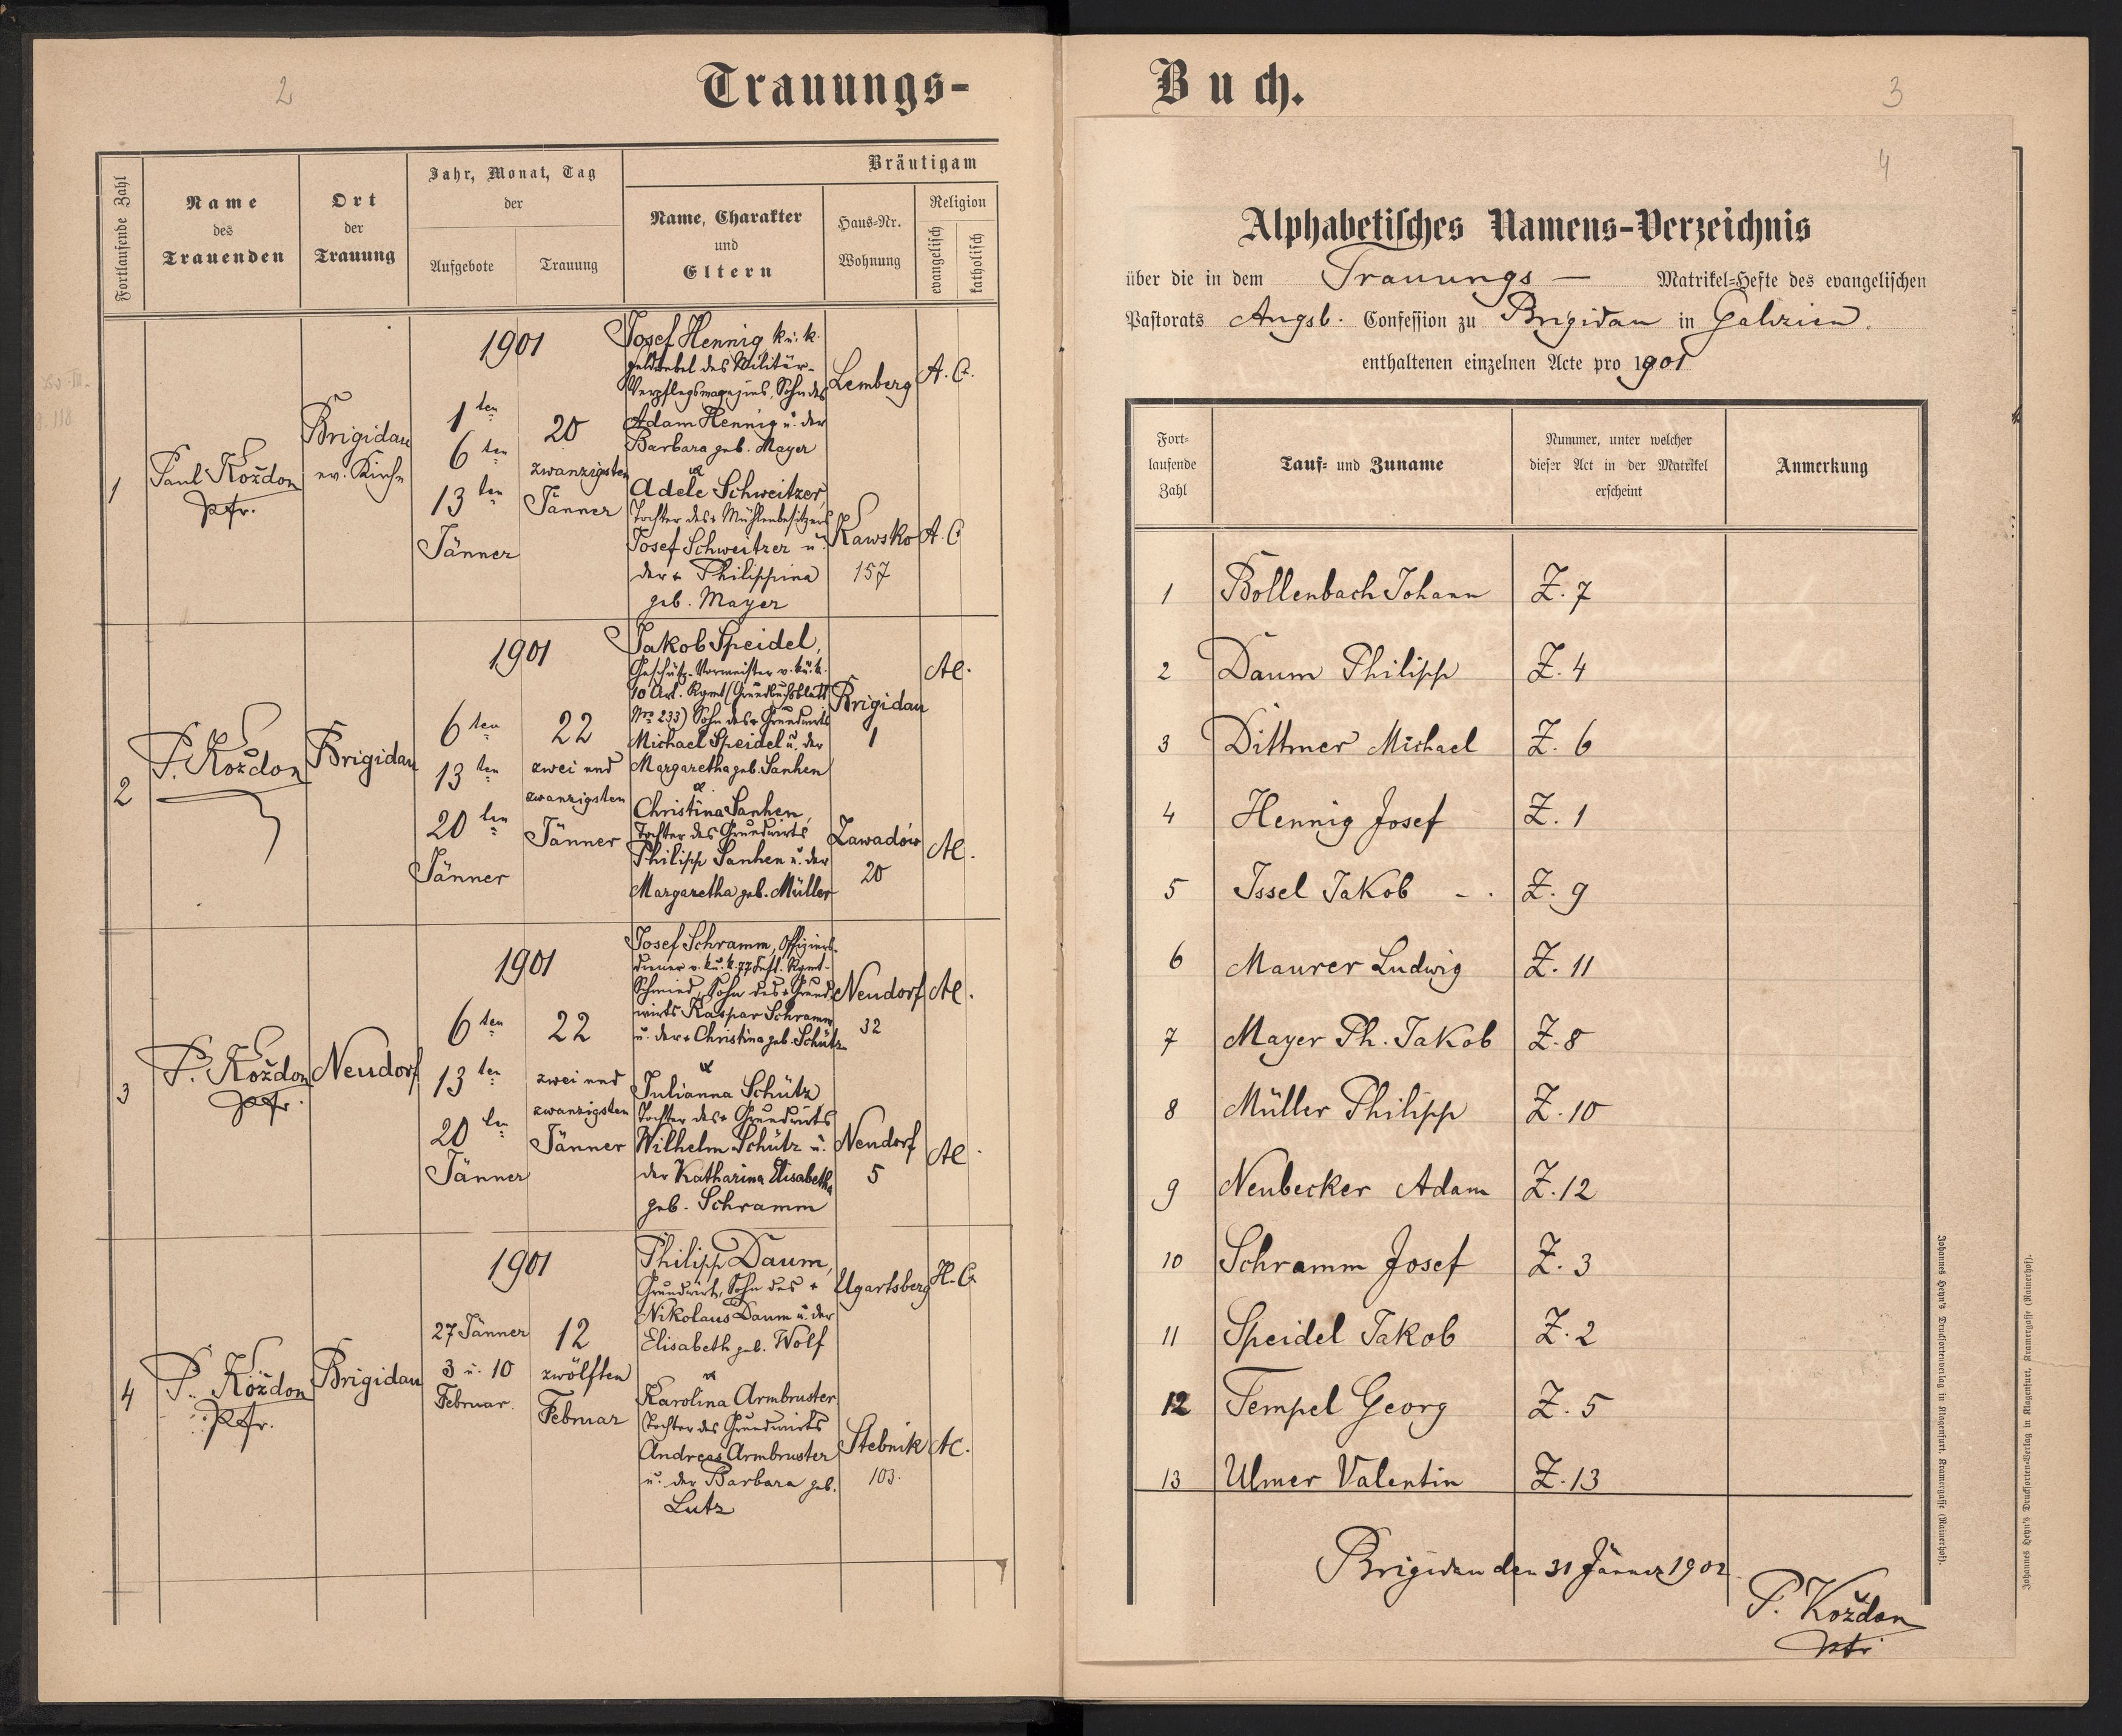 2
Trauungs-
Fortlaufende Zahl
Name
des
Trauenden
Ort
der
Trauung
Jahr, Monat, Tag
der
Aufgebote
Trauung
Bräutigam
Name, Charakter
und
Eltern
Haus-Nr.
Wohnung
Religion
evangelisch
katholisch
1
Paul Koždon
Pfr.
Brigidau
ev. Kirche
1901
1ten
6ten
13ten
Jänner
20
zwanzigsten
Jänner
Josef Hennig k. u. k.
Feldwebel des Militär-
Verpflegsmagazins, Sohn des
Adam Hennig u. der
Barbara geb. Mayer
Adele Schweitzer,
Tochter des + Mühlenbesitzers
Josef Schweitzer u.
der + Philippina
geb. Mayer
Lemberg
A. C.
Kawsko
157
A. C
2
P. Koždon
Brigidau
1901
6ten
13ten
20ten
Jänner
22
zwei und
zwanzigsten
Jänner
Jakob Speidel,
Geschütz-Vormeister v. k. u. k.
10 Art. Rgmt (Grundbuchsblatt
Nro 233) Sohn des + Grundwirts
Michael Speidel u. der
Margaretha geb. Sanhen
Christina Sanhen,
Tochter des Grundwirts
Philipp Sanhen u. der
Margaretha geb. Müller
Brigidau
1
AC.
Zawadów
20
AC.
3
P. Koždon
Pfr.
Neudorf
1901
6ten
13ten
20ten
Jänner
22
zwei und
zwanzigsten
Jänner
Josef Schramm, Offiziers-
diener v. k. u. k. 77 Inft. Rgmt-
Schmied, Sohn des + Grund-
wirts Kaspar Schramm
u. der + Christina geb. Schütz
Julianna Schütz
Tochter des + Grundwirts
Wilhelm Schütz u.
der Katharina Elisabetha
geb. Schramm
Neudorf
32
AC.
Neudorf
5
AC.
4
P. Koždon
Pfr.
Brigidau
1901
27 Jänner
3 u. 10
Februar.
12
zwölften
Februar
Philipp Daum,
Grundwirt, Sohn des +
Nikolaus Daum u. der
Elisabeth geb. Wolf
Karolina Armbruster
Tochter des Grundwirts
Andreas Armbruster
u. der Barbara geb.
Lutz
Ugartsberg
H. C.
Stebnik
103.
AC.
Buch.
3
4
Alphabetisches Namens-Verzeichnis
über die in dem Trauungs — Matrikel-Hefte des evangelischen
Pastorats Augsb. Confession zu Brigidau in Galizien.
enthaltenen einzelnen Acte pro 1901
Fort-
laufende
Zahl
Tauf- und Zuname
Nummer, unter welcher
dieser Act in der Matrikel
erscheint
Anmerkung
1 Bollenbach Johann Z. 7
2 Daum Philipp Z. 4
3 Dittmer Michael Z. 6
4 Hennig Josef Z. 1
5 Issel Jakob - . Z. 9
6 Maurer Ludwig Z. 11
7 Mayer Ph. Jakob Z. 8
8 Müller Philipp Z. 10
9 Neubecker Adam Z. 12
10 Schramm Josef Z. 3
11 Speidel Jakob Z. 2
12 Tempel Georg Z. 5
13 Ulmer Valentin Z. 13
Brigidau den 31 Jänner 1902
P. Koždon
Pfr.
Johannes Heyn's Drucksortenverlag in Klagenfurt, Kramergasse (Rainerhof).
Johannes Heyn's Drucksorten-Verlag in Klagenfurt, Kramergasse (Rainerhof).